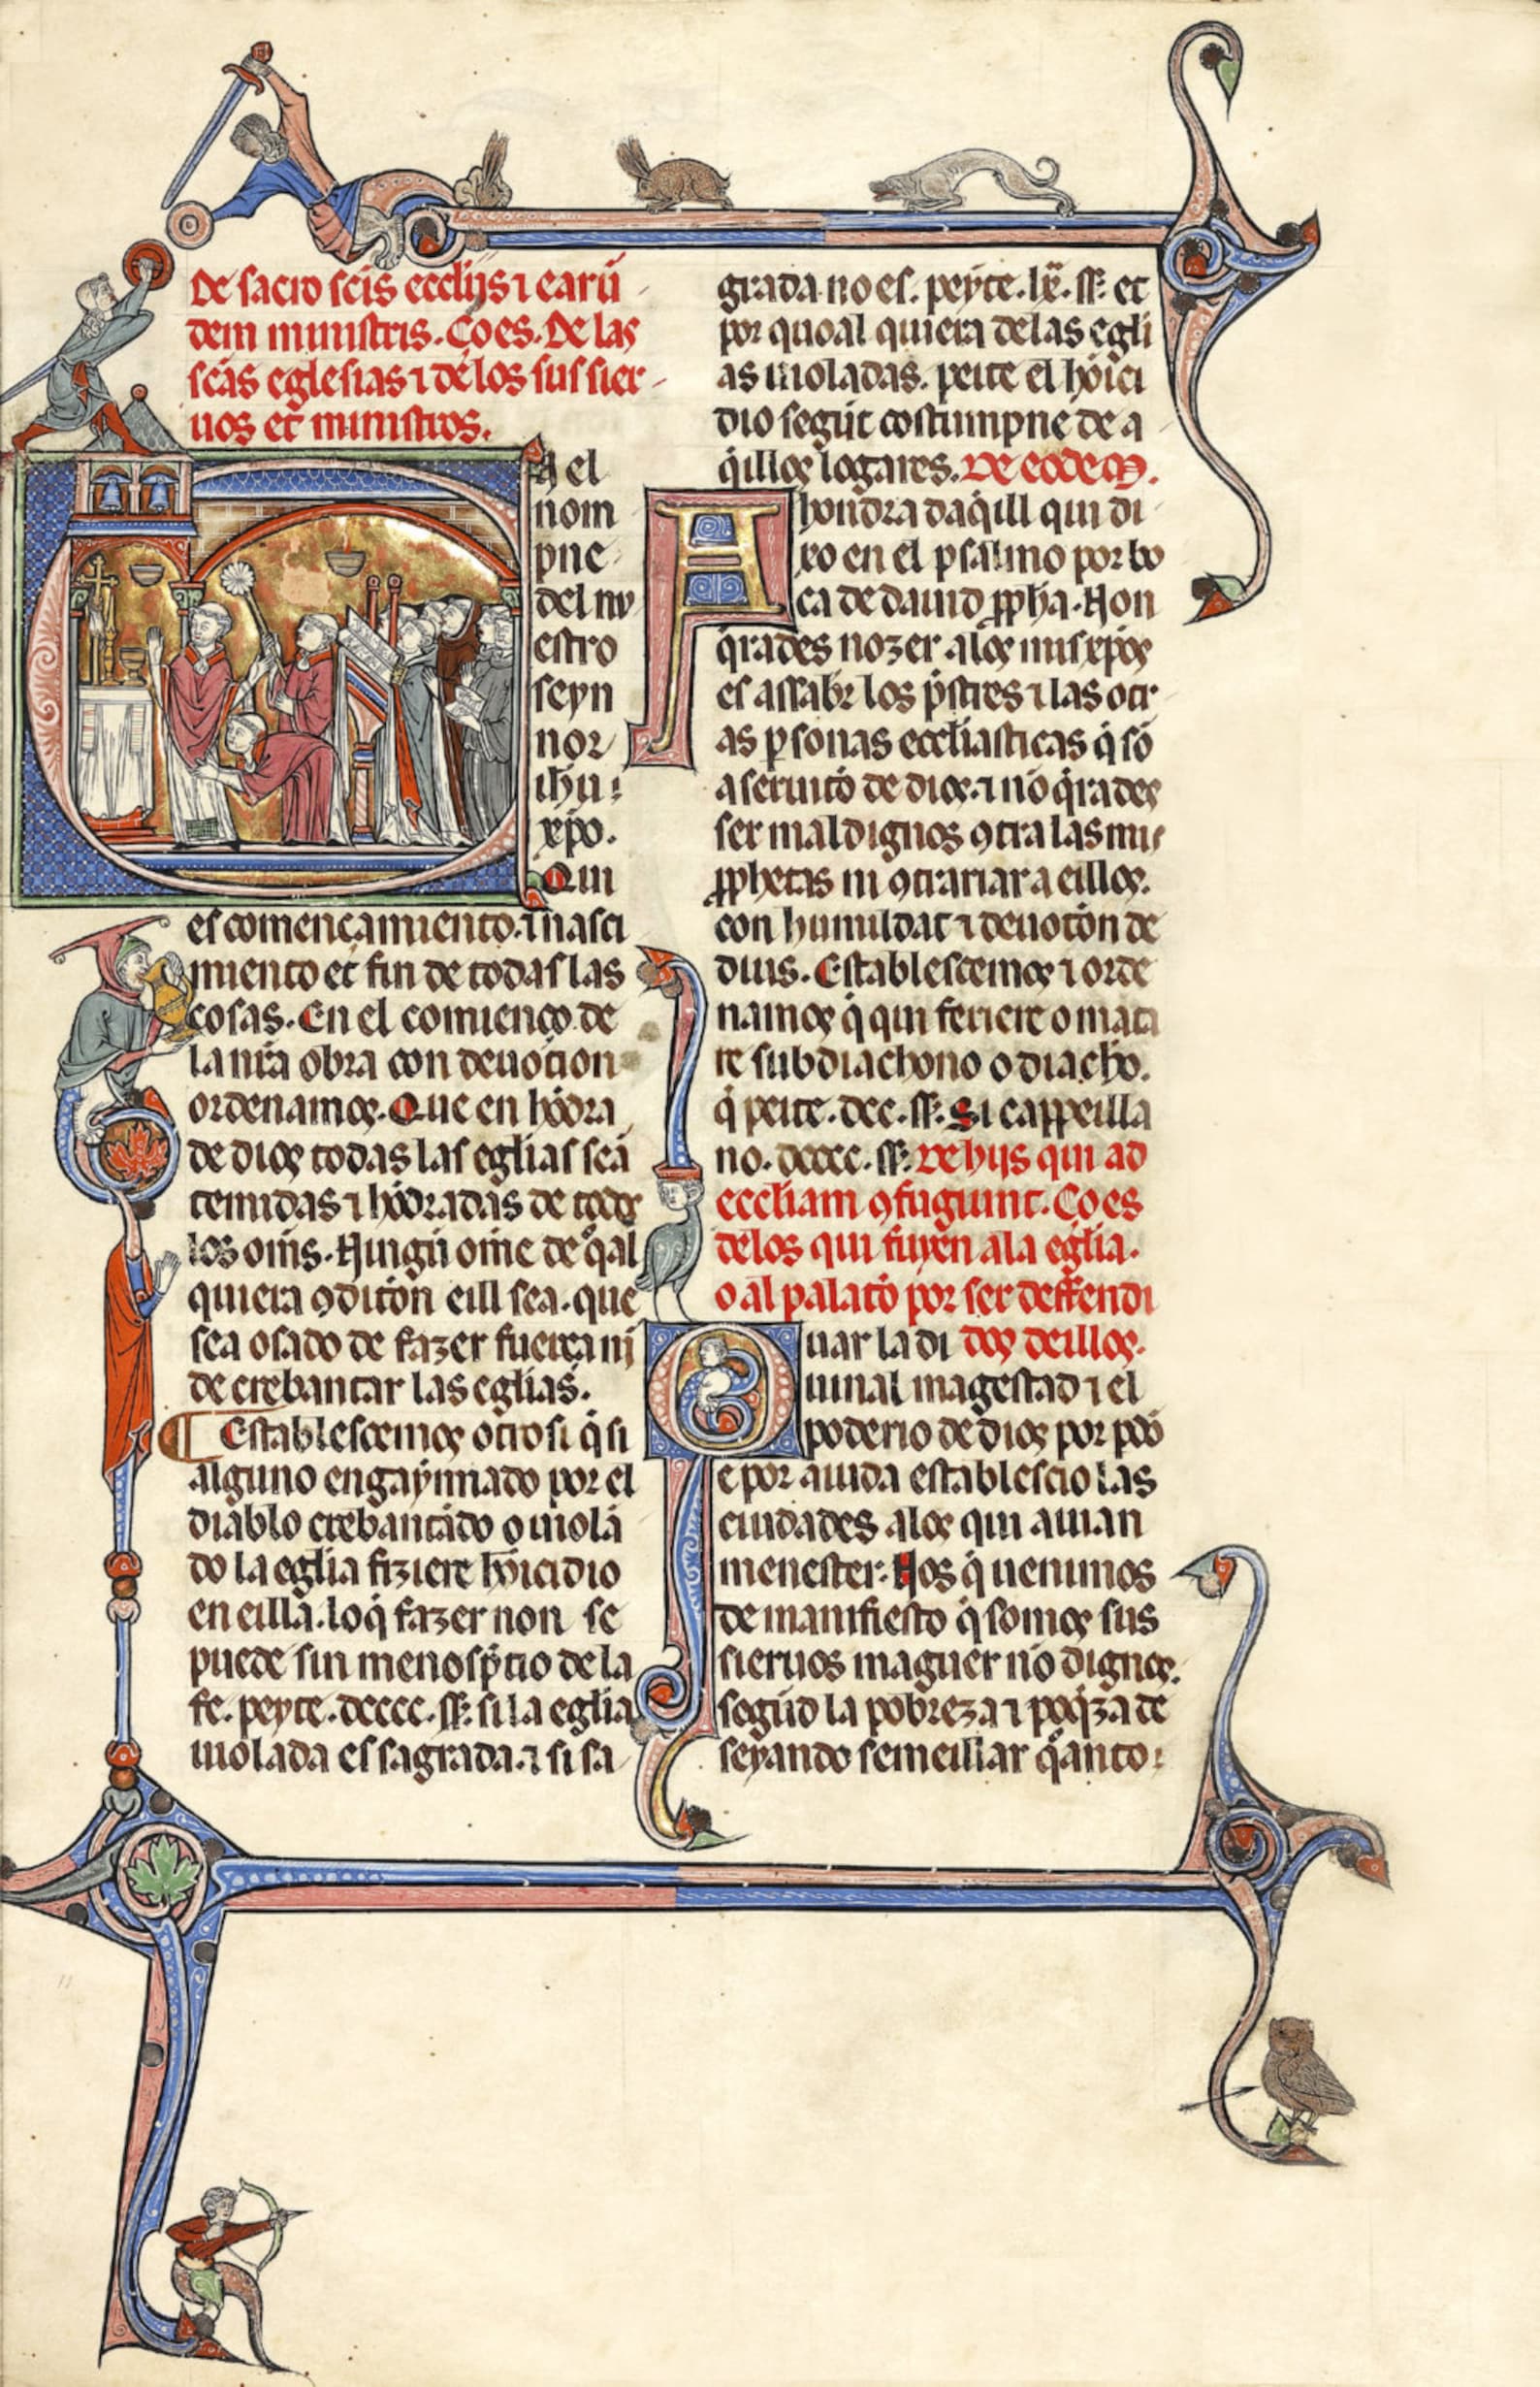 De sacro scis eccliis ⁊ earū
dem ministris. Coes. De las
scās eglesias ⁊ delos sus sier
uos et ministros.
E el
nom
pne
del nu
estro
seyn
nor
ihu
xp̄o.
Qui
es comencamiento. ⁊ nasci
miento et fin de todas las
cosas. En el comienço de
la nr̄a obra con deuocion
ordenamos. Que en hōdra
de dios todas las eglias seā
temidas ⁊ hōdradas de todos
los oms. Ningū ome de qͣal
quiera ꝯdicōn eill sea. que
sea osado de fazer fuerça nj
de crebantar las eglias.
¶ Establescemos otrosi q̄ si
alguno engaynnado por el
diablo crebantādo o uiolā
do la eglia fiziere hōicidio
en eilla. lo q̄ fazer non se
puede sin menosp̄cio de la
fe. peyte. dcccc. ss. si la eglia
uiolada es sagrada. ⁊ si sa
grada no es. peyte. lx̄. ss. et
por quoal quiera delas egli
as uioladas. peite el hōici
dio segūt costumpne de a
q̄illos logares. De eodem.
A hondra daq̄ill qui di
xo en el psalmo por bo
ca de dauid ꝓpha. Non
q̄rades nozer alos mis xp̄os
es assabr̄ los p̄stres ⁊ las otr
as ꝑsonas eccliasticas q̄ sō
a seruicō de dios. ⁊ nō q̄rades
ser maldignos ꝯtra las mis
ꝓphetas ni ꝯtrariar a eillos.
con humildat ⁊ deuotōn de
dius. Establescemos ⁊ orde
namos q̄ qui feriere o mata
re subdiachono o diacħo.
q̄ peite. dcc. ss. Si cappeilla
no. dcccc. ss. De hiis qui ad
eccliam ꝯfugiunt. Co es
delos qui fuyen ala eglia.
o al palacō por ser deffendi
Guar la di dos deillos.
uinal magestad ⁊ el
poderio de dios por pōd
e por aiuda establescio las
ciudades alos qui auian
menester. Nos q̄ uenimos
de manifiesto q̄ somos sus
sieruos maguer nō dignos.
segūd la pobreza ⁊ poq̄za de
seyando semeillar qͣanto